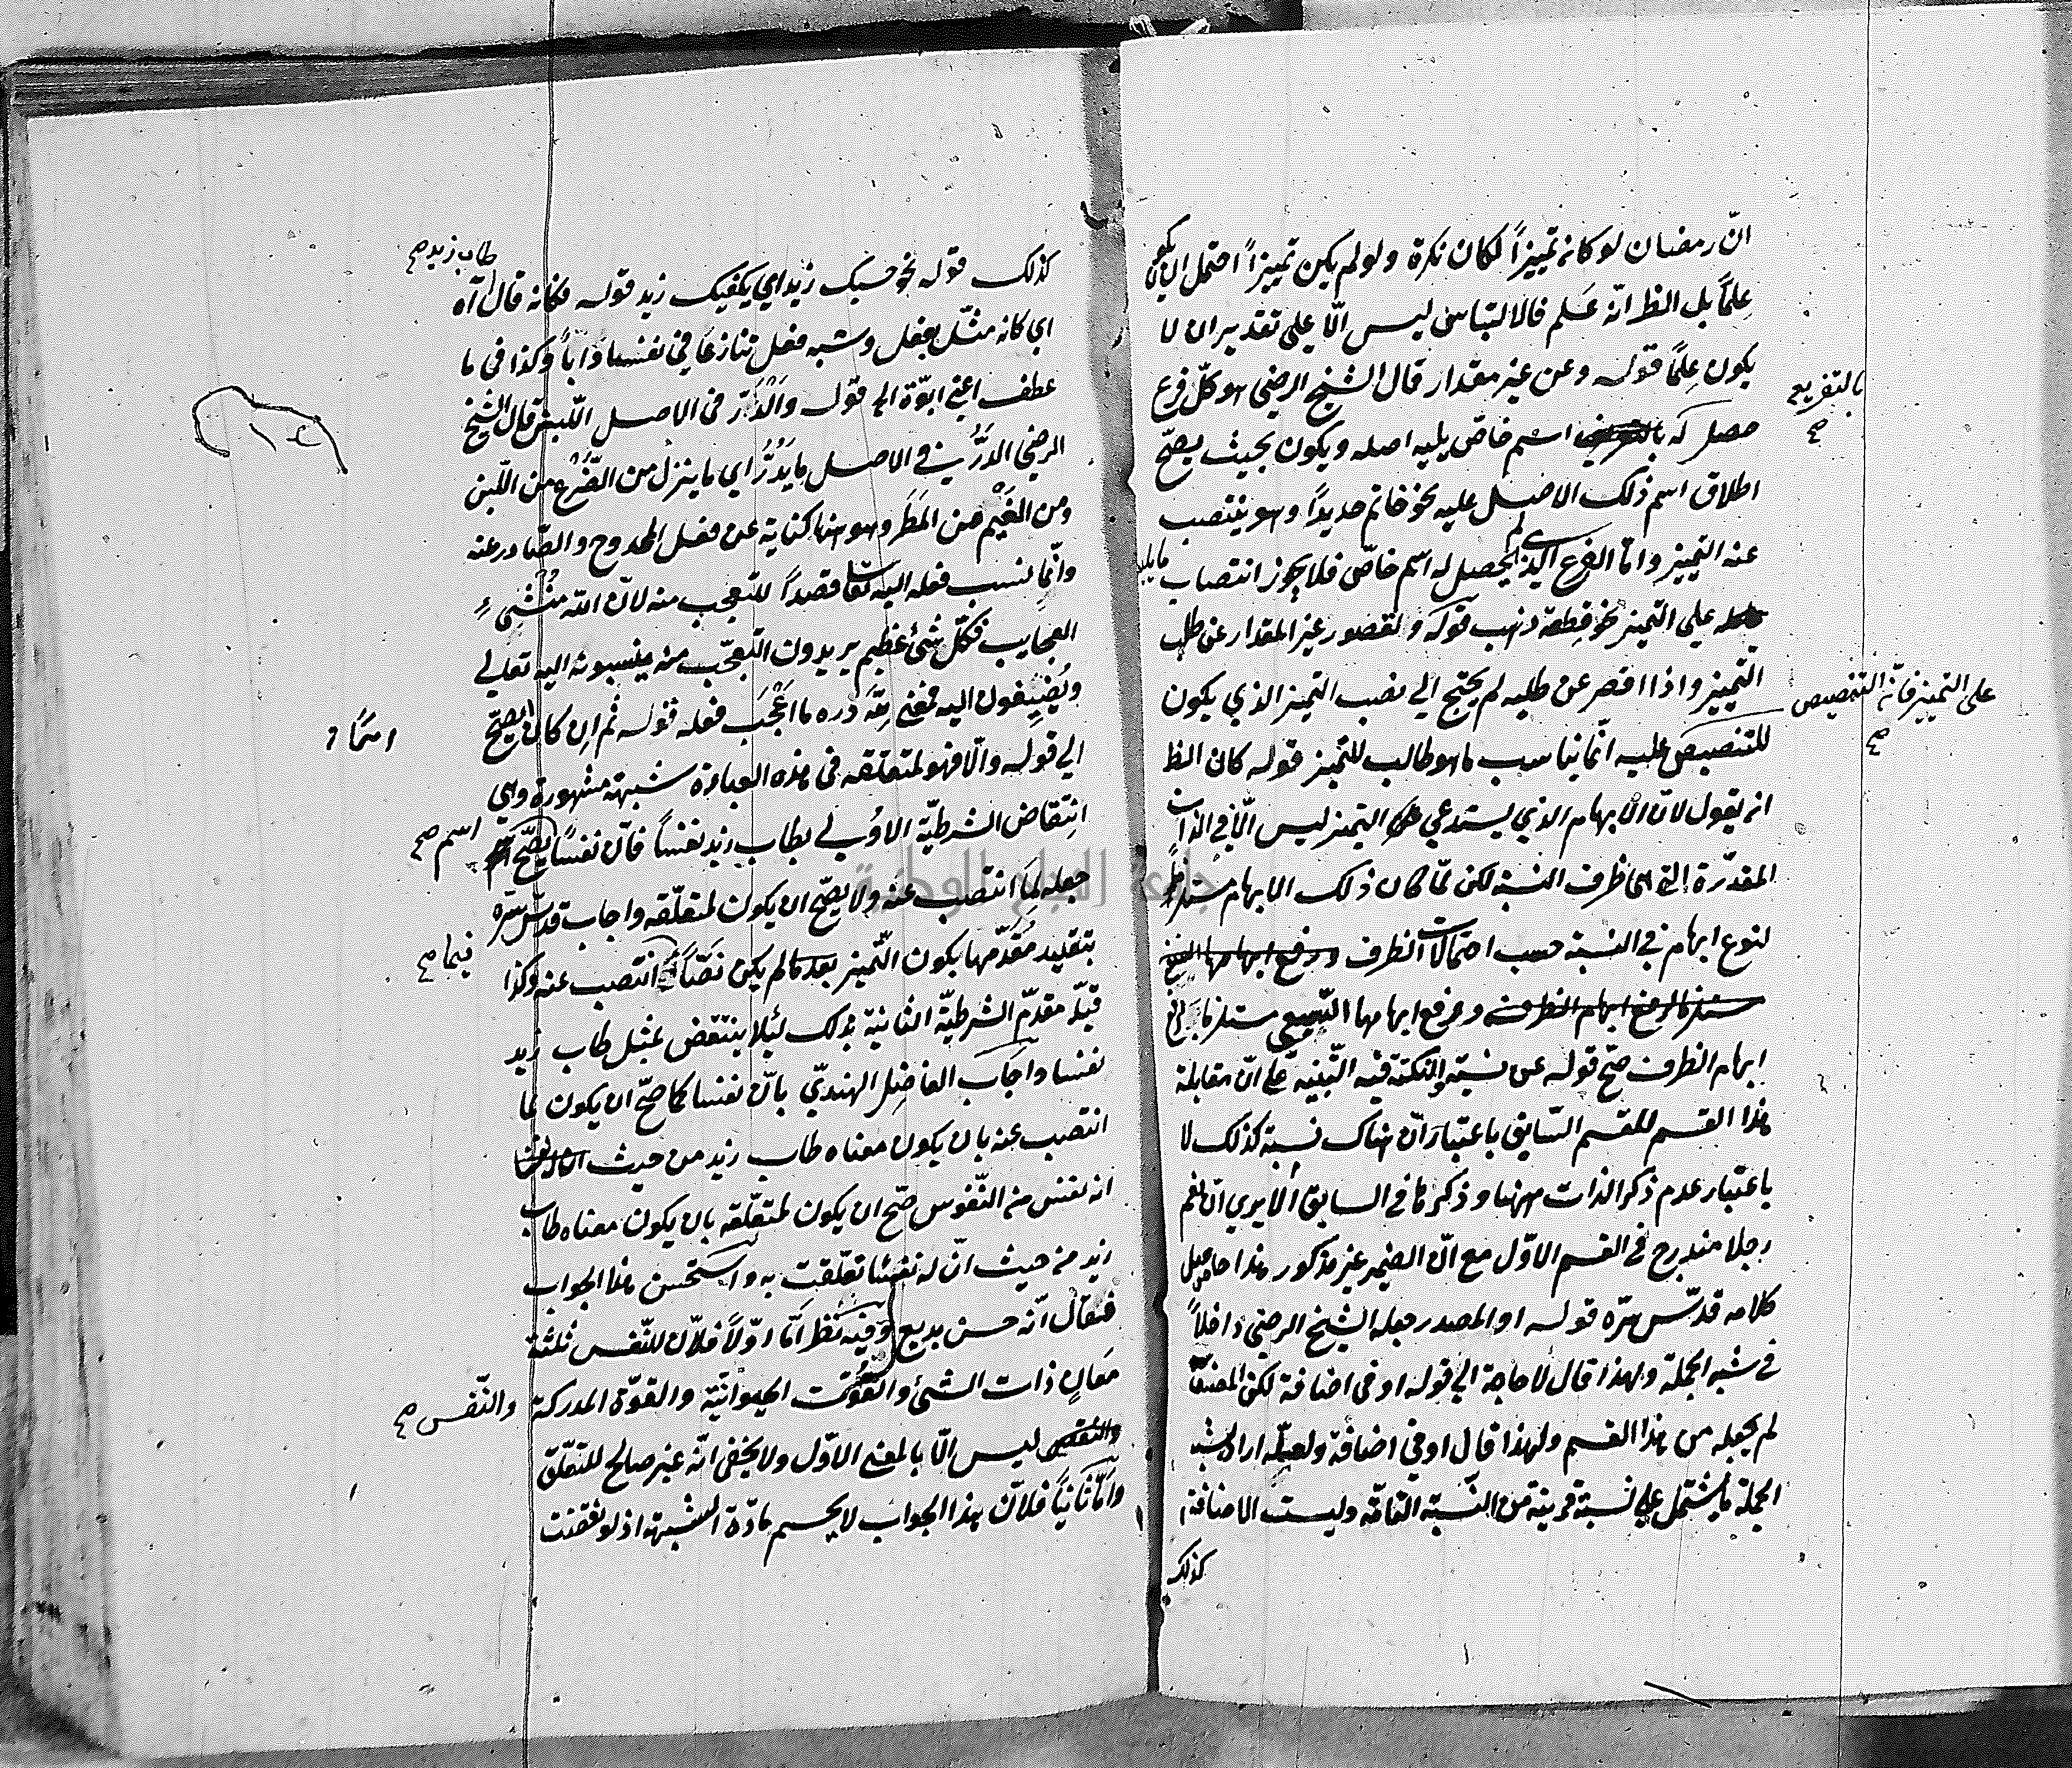 انّ رمضان لو كان تمييزاً لكان نكرة ولو لم يكن تمييزاً احتمل ان يكون
عِلماً بل الظ انّه عَلم فالالتباس ليس الّا على تقدير ان لا
يكون عِلماً قوله وعن غير مقدار قال الشيخ الرضي هو كلّ فرع
حصل له بالتفريع اسم خاصّ يليه اصله ويكون بحيث يصحّ
اطلاق اسم ذلك الاصل عليه نحو خاتم حديداً وهو ينتصب
عنه التمييز وامّا الفرع الذي لم يحصل له اسم خاصّ فلا يجوز انتصاب ما يليه
على التمييز نحو قطعة ذهب قوله ولقصور غير المقدار عن طلب
التمييز واذا اقصر عن طلبه لم يحتج الى نصب التمييز الذي يكون
للتنصيص على التمييز فانّ التنصيص عليه انّما يناسب ما هو طالب للتمييز قوله كان الظ
ان يقول لانّ الابهام الذي يستدعي التمييز ليس الّا في الذات
المقدّرة التي هي طرف النسبة لكن لمّا كان ذلك الابهام مستلزماً
لنوع ابهام في النسبة حسب احتمالات الطرف
ورفع ابهامها مستلزما لرفع
ابهام الطرف صحّ قوله عن نسبة والنكتة فيه التنبيه على انّ مقابلة
هذا القسم للقسم السّابق باعتبار انّ هناك نسبة كذلك لا
باعتبار عدم ذكر الذات ههنا وذكرها في السابق ألا يرى انّ نعم
رجلا مندرج في القسم الاوّل مع انّ الضمير غير مذكور هذا حاصل
كلامه قدّس سرّه قوله او المصدر جعله الشيخ الرضي داخلاً
في شبه الجملة ولهذا قال لا حاجة الى قوله او في اضافة لكن المصنّف
لم يجعله من هذا القسم ولهذا قال او في اضافة ولعلّه اراد بشبه
الجملة ما يشتمل على نسبة قريبة من النّسبة التامّة وليست الاضافة
كذلك
كذلك قوله نحو حسبك زيد اي يكفيك زيد قوله فكانه قال طاب زيد آه
اي كانه مثّل بفعل وشبه فعل تنازعا في نفسا وابا وكذا في ما
عطف اعني ابوّة الى قوله والدَّرّ في الاصل اللّبن قال الشيخ
الرضي الدَرُّ في الاصل ما يَدُرُّ اي ما ينزل من الضّرع من اللّبن
ومن الغَيْم من المَطَر وهو هنا كناية عن فعل الممدوح والصّادر عنه
وانّما نسب فعله اليه تعا قصداً للتعجب منه لانّ الله مُنْشِئ
العجايب فكلّ شئ عظيم يريدون التّعجّب منه ينسبونه اليه تعالي
ويُضيفون اليه فمعنى لِلّه دَرّه ما اَعْجَب فعله قوله ثم اِن كان اسمًا يصحّ
الي قوله والّا فهو لمتعلّقه في هذه العبارة شبهة مشهورة وهي
انتِقاض الشرطيّة الاولي بطاب زيد نفساً فانّ نفسًا اسم يصحّ
جعله لِما انتصب عنه ولا يصحّ ان يكون لمتعلّقه واجاب قدّس سرّه
بتقييد مُقدّمها بكون التّمييز بعد ما لم يكن نَصّاً فيما انتصب عنه وكذا
قيّد مقدّم الشرطيّة الثانية بذلك لئلا ينتقض بمثل طاب زيد
نفسا واَجاب الفاضل الهنديّ بانّ نفسا كما صحّ ان يكون لما
انتصب عنه بان يكون معناه طاب زيد من حيث
انه نفس من النّفوس صحّ ان يكون لمتعلّقه بان يكون معناه طاب
زيد من حيث انّ له نفسًا تعلّقت به واستحسن هذا الجواب
فقال انّه حسن بديع وفيه نظر امّا اوّلاً فلانّ للنّفس ثلثة
مَعانٍ ذات الشئ والقوّة الحيوانيّة والقوّة المدركة والنّفس
ليس الّا بالمعنى الاوّل ولا يخفى انّه غير صالح للتعلّق
وامّا ثانياً فلانّ هذا الجواب لا يحسم مادّة الشبهة اذ لو نقضت